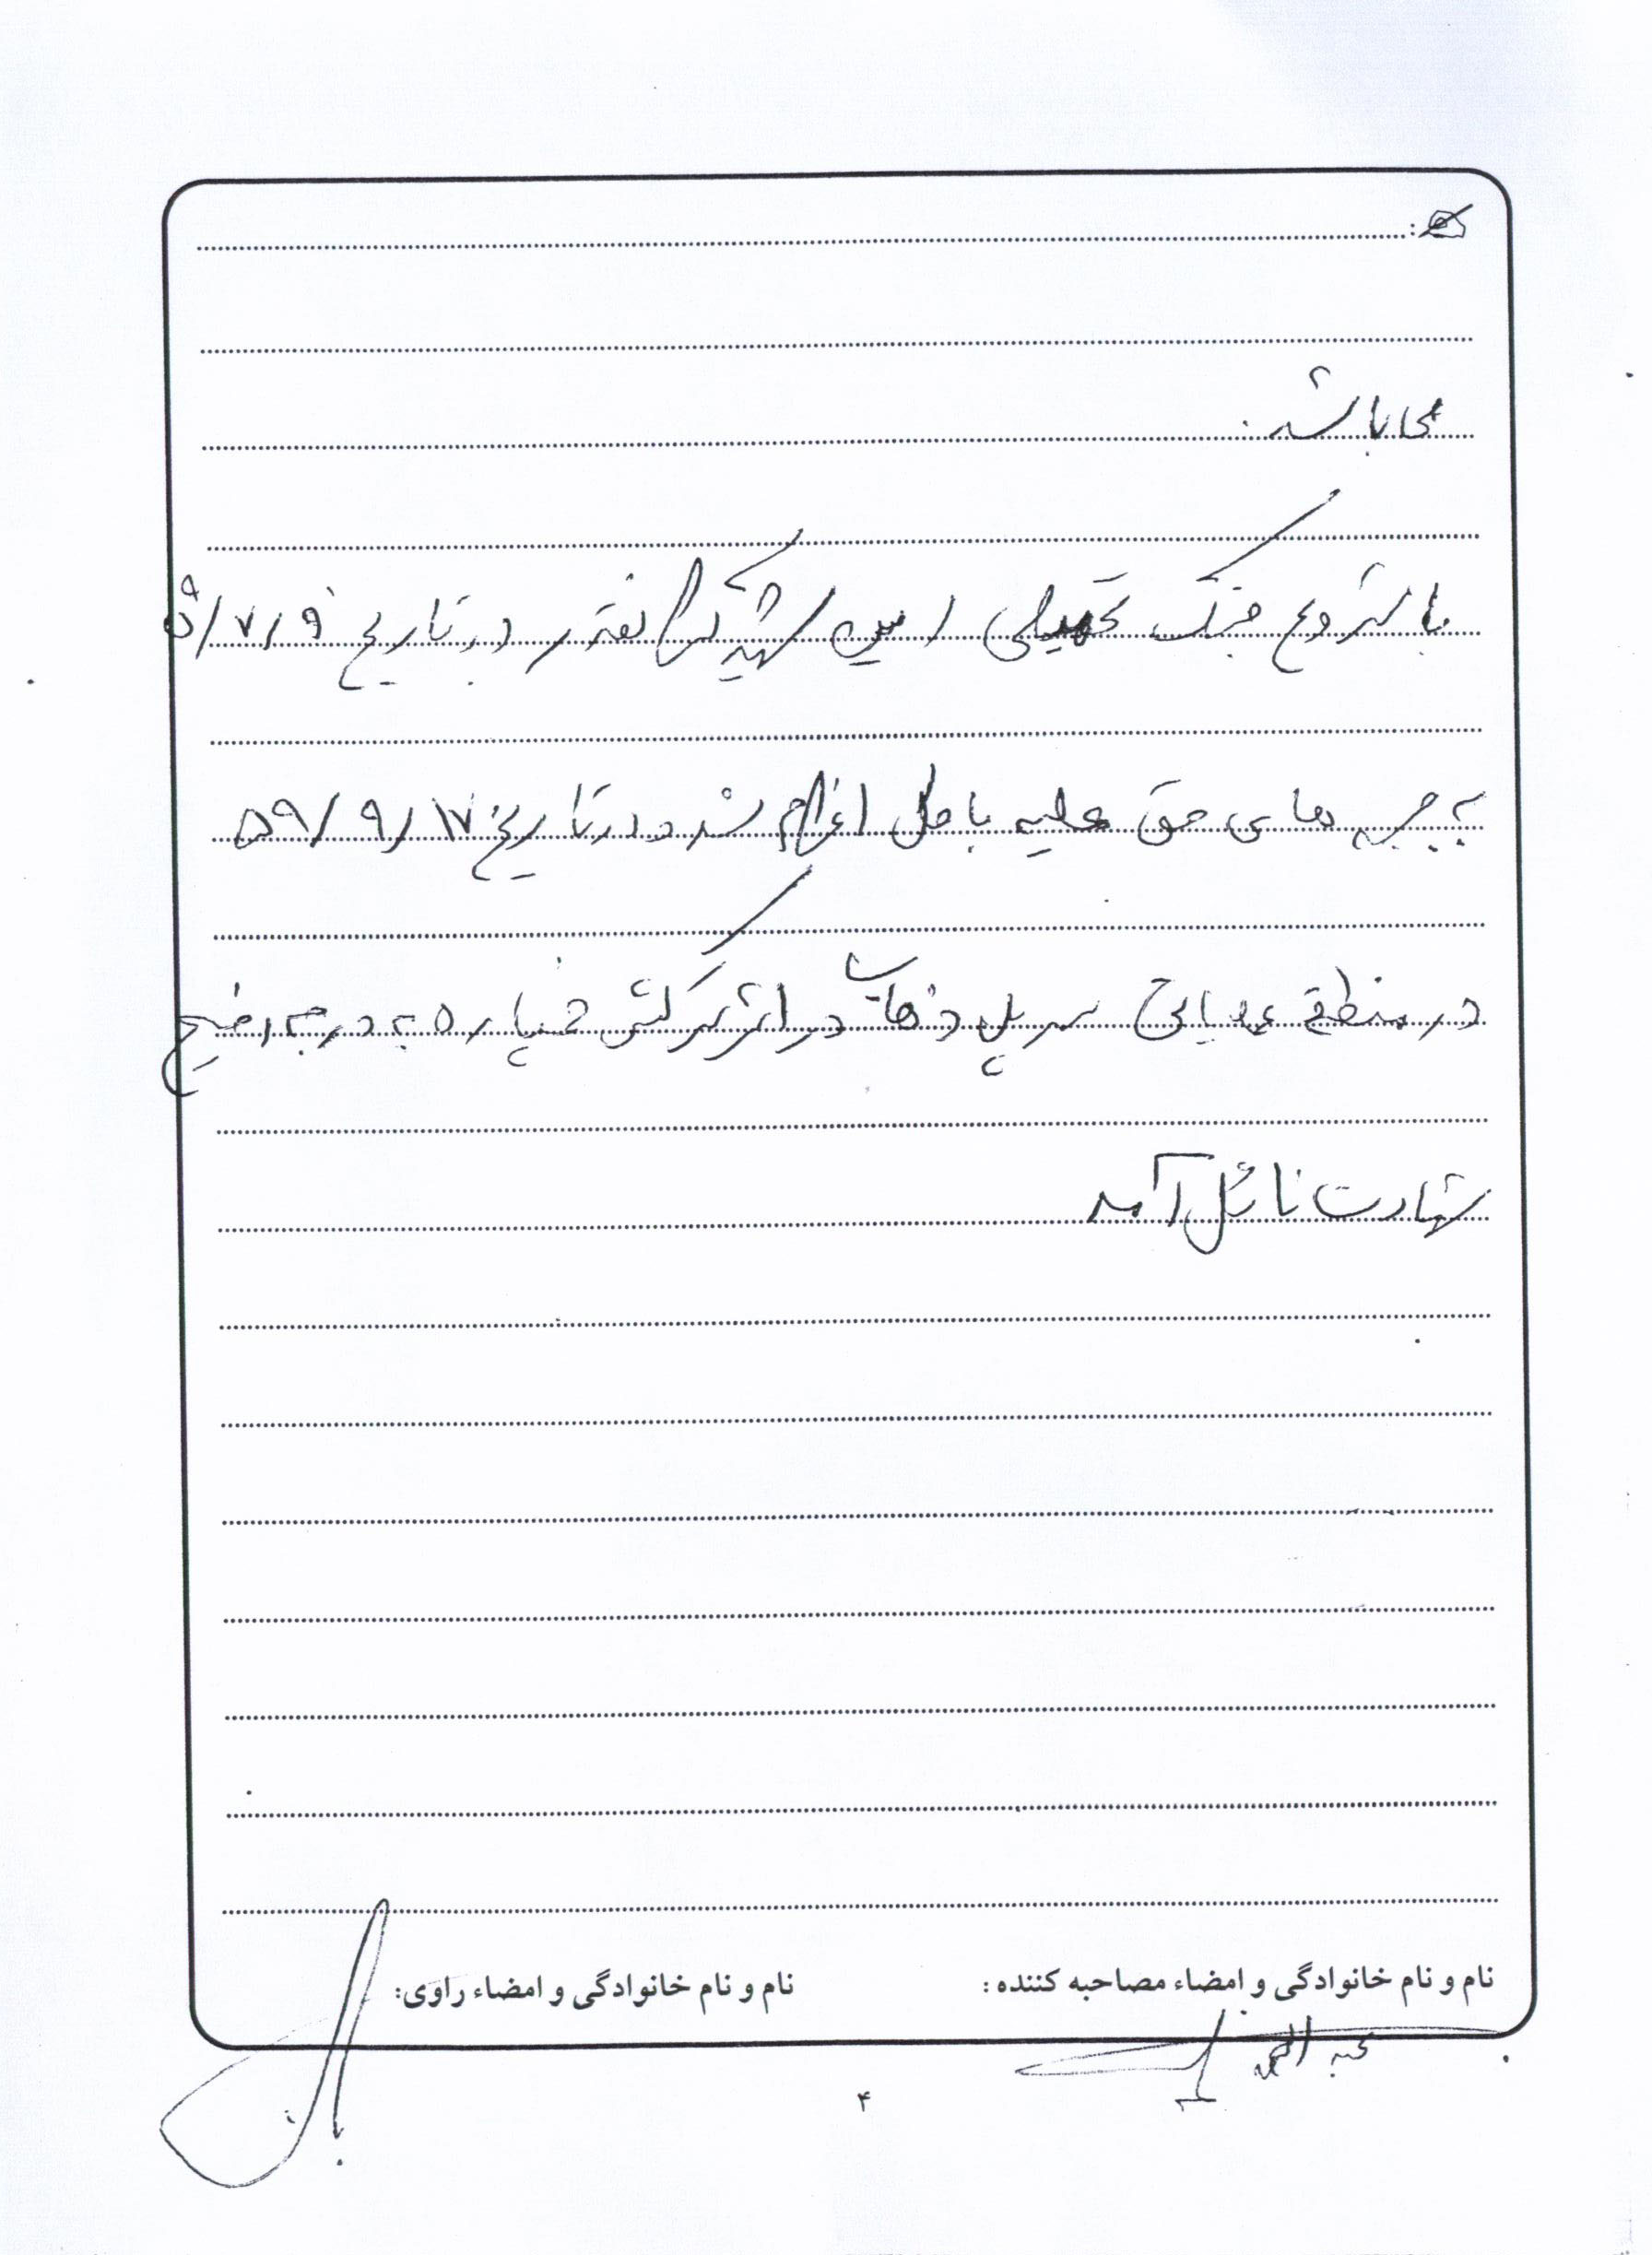 می باشد.
با شروع جنگ تحمیلی این شهید گرانقدر در تاریخ ۵۹/۷/۹
به جبهه های حق علیه باطل اعزام شد و در تاریخ ۵۹/۹/۱۷
در منطقه عملیاتی سر پل ذهاب در اثر ترکش خمپاره به درجه رفیع
شهادت نائل آمد
نام و نام خانوادگی و امضاء مصاحبه کننده :
نام و نام خانوادگی و امضاء راوی:
۴